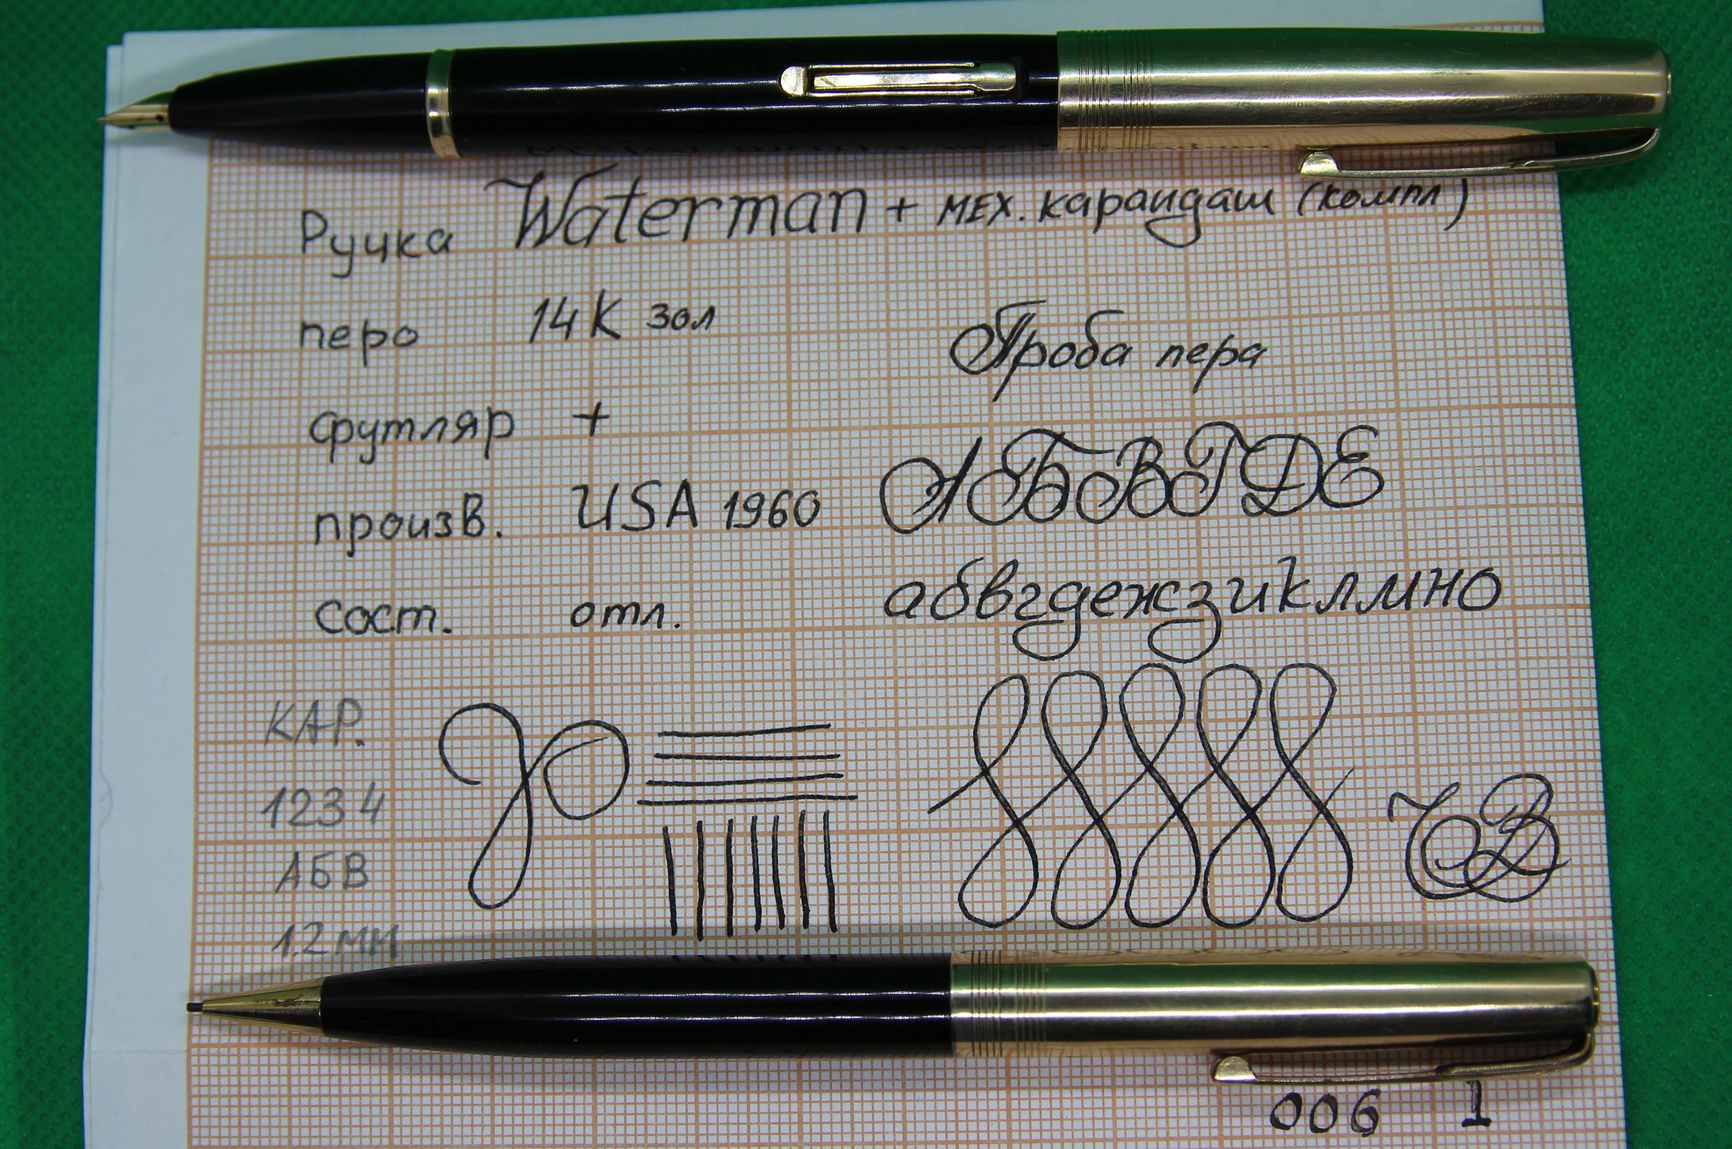 Ручка Waterman + мех. карандаш (компл)
перо 14К зол
Проба пера
футляр +
АБВГДЕ
произв. USA 1960
абвгдежзиклмно
сост. отл.
КАР.
1234
АБВ
1.2 мм
006 1